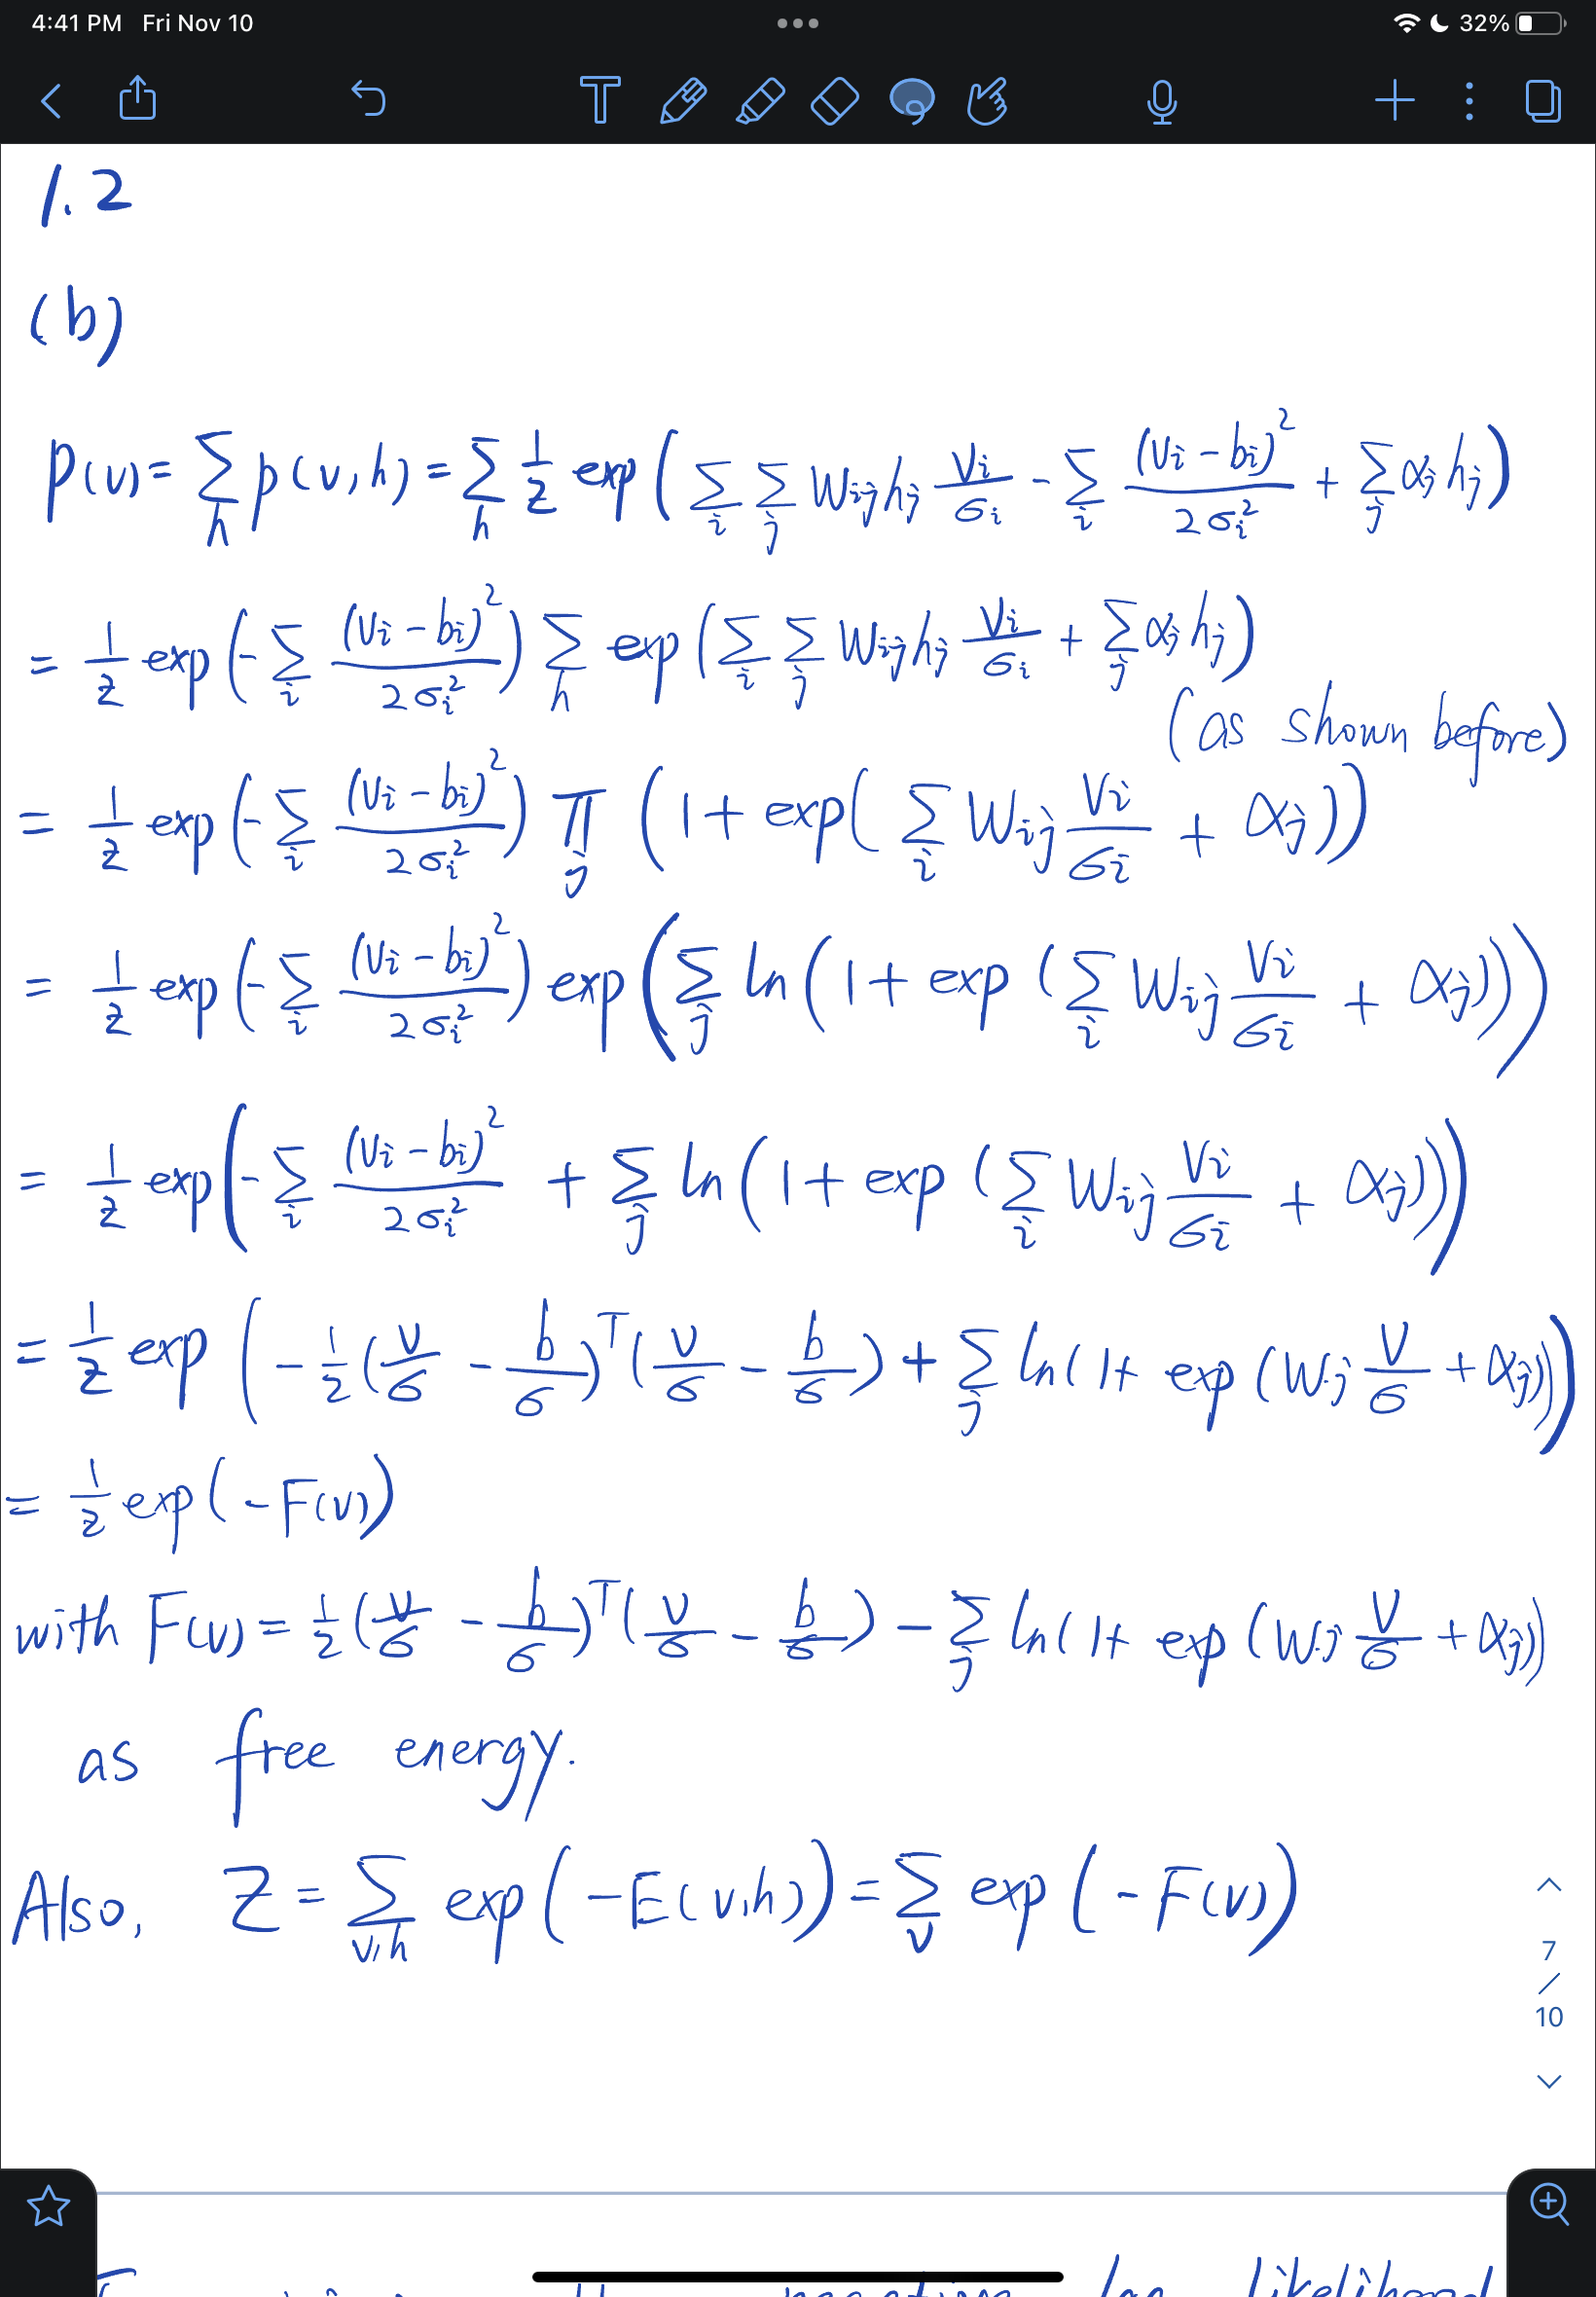 4:41 PM Fri Nov 10
32%
T
1.2
(b)
p(v) = ∑_h p(v,h) = ∑_h 1/Z exp( ∑_i ∑_j W_ij h_j v_i/σ_i - ∑_i (v_i - b_i)²/2σ_i² + ∑_j α_j h_j )
= 1/Z exp( -∑_i (v_i - b_i)²/2σ_i² ) ∑_h exp( ∑_i ∑_j W_ij h_j v_i/σ_i + ∑_j α_j h_j )
(as shown before)
= 1/Z exp( -∑_i (v_i - b_i)²/2σ_i² ) ∏_j ( 1 + exp( ∑_i W_ij v_i/σ_i + α_j ))
= 1/Z exp( -∑_i (v_i - b_i)²/2σ_i² ) exp( ∑_j ln( 1 + exp( ∑_i W_ij v_i/σ_i + α_j )))
= 1/Z exp( -∑_i (v_i - b_i)²/2σ_i² + ∑_j ln( 1 + exp( ∑_i W_ij v_i/σ_i + α_j )))
= 1/Z exp( - 1/2 (v/σ - b/σ)^T (v/σ - b/σ) + ∑_j ln( 1 + exp( W_·j v/σ + α_j )))
= 1/Z exp( - F(v))
with F(v) = 1/2 (v/σ - b/σ)^T (v/σ - b/σ) - ∑_j ln( 1 + exp( W_·j v/σ + α_j ))
as free energy.
Also, Z = ∑_v,h exp( - E(v,h)) = ∑_v exp( - F(v))
7
/
10
negative log likelihood